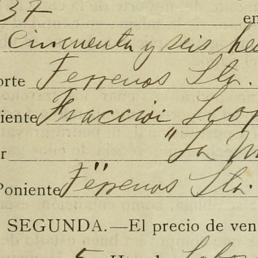 37 en
Cincuenta y seis hec
orte Terrenos Sta.
iente Fracción
or "La
Poniente Terrenos Sta.
SEGUNDA.—El precio de ven